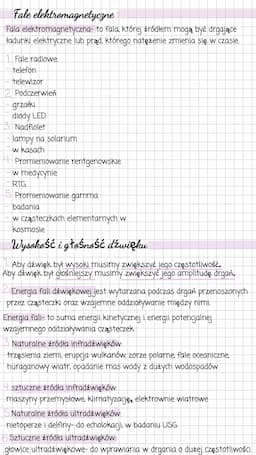 Fale elektromagnetyczne
Fala elektromagnetyczna- to fala, której źródłem mogą być drgające
ładunki elektryczne lub prąd, którego natężenie zmienia się w czasie.
1. Fale radiowe
- telefon
- telewizor
2. Podczerwień
- grzałki
- diody LED
3. Nadfiolet
- lampy na solarium
- w kasach
4. Promieniowanie rentgenowskie
- w medycynie
- RTG
5. Promieniowanie gamma
- badania
- w cząsteczkach elementarnych w
kosmosie
Wysokość i głośność dźwięku
1. Aby dźwięk był wysoki musimy zwiększyć jego częstotliwość.
Aby dźwięk był głośniejszy musimy zwiększyć jego amplitudę drgań.
2. Energia fali dźwiękowej jest wytarzana podczas drgań przenoszonych
przez cząsteczki oraz wzajemne oddziaływanie między nimi.
Energia fali- to suma energii kinetycznej i energii potencjalnej
wzajemnego oddziaływania cząsteczek.
3. Naturalne źródła infradźwięków:
trzęsienia ziemi, erupcja wulkanów, zorze polarne, fale oceaniczne,
huraganowy wiatr, opadanie mas wody z dużych wodospadów
4. sztuczne źródła infradźwięków:
maszyny przemysłowe, klimatyzację, elektrownie wiatrowe
5. Naturalne źródła ultradźwięków:
nietoperze i delfiny- do echolokacji, w badaniu USG
6. Sztuczne źródła ultradźwięków:
głowice ultradźwiękowe- do wprawiania w drgania o dużej częstotliwości.